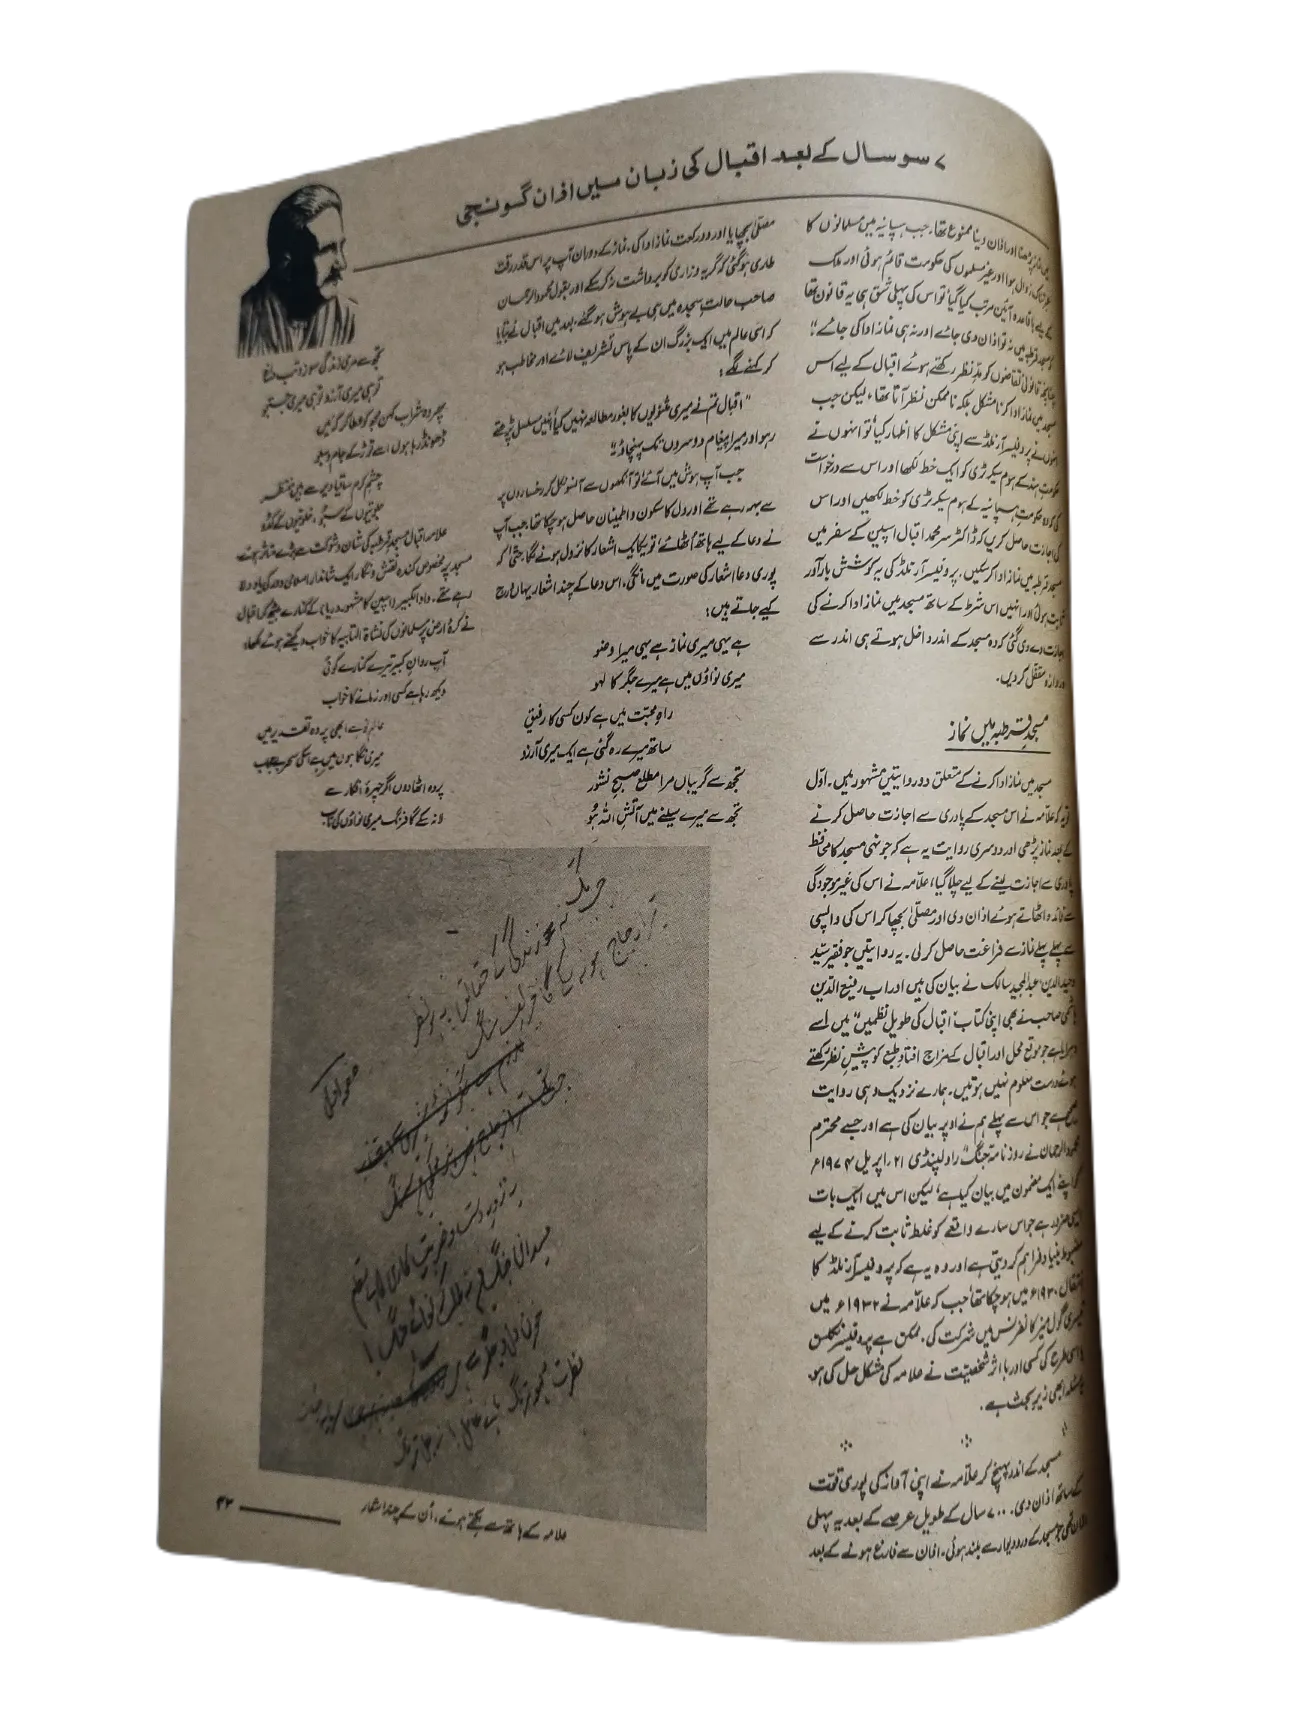 ۷ سو سال کے بعد اقبال کی زبان میں اذان گونجی
نماز پڑھنا اور اذان دینا ممنوع تھا۔ جب ہسپانیہ میں مسلمانوں کا
زوال ہوا اور غیر مسلموں کی حکومت قائم ہوئی اور ملک
کے لیے باقاعدہ آئین مرتب کیا گیا تو اس کی پہلی شق ہی یہ قانون تھا
کہ مسجد قرطبہ میں نہ تو اذان دی جائے اور نہ ہی نماز ادا کی جائے"
چنانچہ قانونی تقاضوں کو مدِ نظر رکھتے ہوئے اقبال کے لیے اس
مسجد میں نماز ادا کرنا مشکل بلکہ ناممکن نظر آتا تھا، لیکن جب
انہوں نے پروفیسر آرنلڈ سے اپنی مشکل کا اظہار کیا تو انہوں نے
حکومت ہند کے ہوم سیکرٹری کو ایک خط لکھا اور اس سے درخواست
کی کہ وہ حکومت ہسپانیہ کے ہوم سیکرٹری کو خط لکھیں اور اس
کی اجازت حاصل کریں کہ ڈاکٹر سر محمد اقبال اسپین کے سفر میں
مسجد قرطبہ میں نماز ادا کر سکیں، پروفیسر آرنلڈ کی یہ کوشش بارآور
ثابت ہوئی اور انہیں اس شرط کے ساتھ مسجد میں نماز ادا کرنے کی
اجازت دے دی گئی کہ وہ مسجد کے اندر داخل ہوتے ہی اندر سے
دروازہ مقفل کر دیں۔
مسجدِ قرطبہ میں نماز
مسجد میں نماز ادا کرنے کے متعلق دو روایتیں مشہور ہیں۔ اوّل
تو یہ کہ علامہ نے اس مسجد کے پادری سے اجازت حاصل کرنے
کے بعد نماز پڑھی اور دوسری روایت یہ ہے کہ جونہی مسجد کا محافظ
پادری سے اجازت لینے کے لیے چلا گیا، علامہ نے اس کی غیر موجودگی
سے فائدہ اٹھاتے ہوئے اذان دی اور مصلّٰی بچھا کر اس کی واپسی
سے پہلے پہلے نماز سے فراغت حاصل کر لی۔ یہ روایتیں جو فقیر سیّد
وحید الدین، عبدالمجید سالک نے بیان کی ہیں اور اب رفیع الدین
ہاشمی صاحب نے بھی اپنی کتاب "اقبال کی طویل نظمیں" میں اسے
دہرایا ہے جو موقع محل اور اقبال کے مزاج افتادِ طبع کو پیشِ نظر رکھتے
ہوئے درست معلوم نہیں ہوتیں۔ ہمارے نزدیک وہی روایت
صحیح ہے جو اس سے پہلے ہم نے اوپر بیان کی ہے اور جسے محترم
محمود الرحمان نے روزنامہ "جنگ" راولپنڈی ۲۱ اپریل ۱۹۷۴ء
کے اپنے ایک مضمون میں بیان کیا ہے، لیکن اس میں ایک بات
ایسی ضرور ہے جو اس سارے واقعے کو غلط ثابت کرنے کے لیے
مضبوط بنیاد فراہم کر دیتی ہے اور وہ یہ ہے کہ پروفیسر آرنلڈ کا
انتقال ۱۹۳۰ء میں ہو چکا تھا، جب کہ علامہ نے ۱۹۳۲ء میں
تیسری گول میز کانفرنس میں شرکت کی۔ ممکن ہے پروفیسر نکلسن
یا اسی طرح کی کسی اور بااثر شخصیت نے علامہ کی مشکل حل کی ہو۔
یہ مسئلہ ابھی زیرِ بحث ہے۔
مسجد کے اندر پہنچ کر علامہ نے اپنی آواز کی پوری قوت
کے ساتھ اذان دی۔ ۷۰۰ سال کے طویل عرصے کے بعد یہ پہلی
اذان تھی جو مسجد کے در و دیوار سے بلند ہوئی۔ اذان سے فارغ ہونے کے بعد
مصلّٰی بچھایا اور دو رکعت نماز ادا کی۔ نماز کے دوران آپ پر اس قدر رقت
طاری ہو گئی کہ گریہ و زاری کو برداشت نہ کر سکے اور بقول محمود الرحمان
صاحب حالتِ سجدہ میں ہی بے ہوش ہو گئے۔ بعد میں اقبال نے بتایا
کہ اسی عالم میں ایک بزرگ ان کے پاس تشریف لائے اور مخاطب ہو
کر کہنے لگے:
"اقبال تم نے میری مثنویوں کا بغور مطالعہ نہیں کیا، انہیں مسلسل پڑھتے
رہو اور میرا پیغام دوسروں تک پہنچاؤ۔"
جب آپ ہوش میں آئے تو آنکھوں سے آنسو نکل کر رخساروں پر
سے بہہ رہے تھے اور دل کا سکون و اطمینان حاصل ہو چکا تھا، جب آپ
نے دعا کے لیے ہاتھ اُٹھائے تو یکایک اشعار کا نزول ہونے لگا، حتیٰ کہ
پوری دعا اشعار کی صورت میں مانگی۔ اس دعا کے چند اشعار یہاں درج
کیے جاتے ہیں:
ہے یہی میری نماز ہے یہی میرا وضو
میری نواؤں میں ہے میرے جگر کا لہو
راہِ محبت میں ہے کون کسی کا رفیق
ساتھ میرے رہ گئی ہے ایک میری آرزو
تجھ سے گریباں مرا مطلعِ صبحِ نشور
تجھ سے میرے سینے میں آتشِ اللہ ہُو
تجھ سے مری زندگی سوز و تب و داغ
تو ہی میری آرزو تو ہی میری جستجو
پھر وہ شراب کہن مجھ کو عطا کر کہ میں
ڈھونڈ رہا ہوں اسے توڑ کے جام و سبو
چشمِ کرم ساقیا دیر سے ہیں منتظر
جلوتیوں کے سبو، خلوتیوں کے کدو
علامہ اقبال مسجدِ قرطبہ کی شان و شوکت سے بڑے متاثر ہوئے
مسجد پر مخصوص کندہ نقش و نگار ایک شاندار اسلامی دور کی یاد دلا
رہے تھے۔ وادالکبیر (اسپین کا مشہور دریا) کے کنارے بیٹھ کر اقبال
نے کرۂ ارض پر مسلمانوں کی نشاۃ الثانیہ کا خواب دیکھتے ہوئے لکھا،
آبِ روانِ کبیر تیرے کنارے کوئی
دیکھ رہا ہے کسی اور زمانے کا خواب
عالمِ نو ہے ابھی پردہ تقدیر میں
میری نگاہوں میں ہے اسکی سحر بے حجاب
پردہ اٹھا دوں اگر چہرۂ افکار سے
لا نہ سکے گا فرنگ میری نواؤں کی تاب
جب تک نہ زندگی کے حقائق پہ ہو نظر
تیرا زجاج ہو نہ سکے گا حریفِ سنگ
یہ زورِ دست و ضربتِ کاری کا ہے مقام
میدانِ جنگ میں نہ طلب کر نوائے چنگ!
خونِ دل و جگر سے ہے سرمایۂ حیات
فطرت لہو ترنگ ہے غافل! نہ جل ترنگ
علامہ کے ہاتھ سے لکھے ہوئے، اُن کے چند اشعار
۴۳